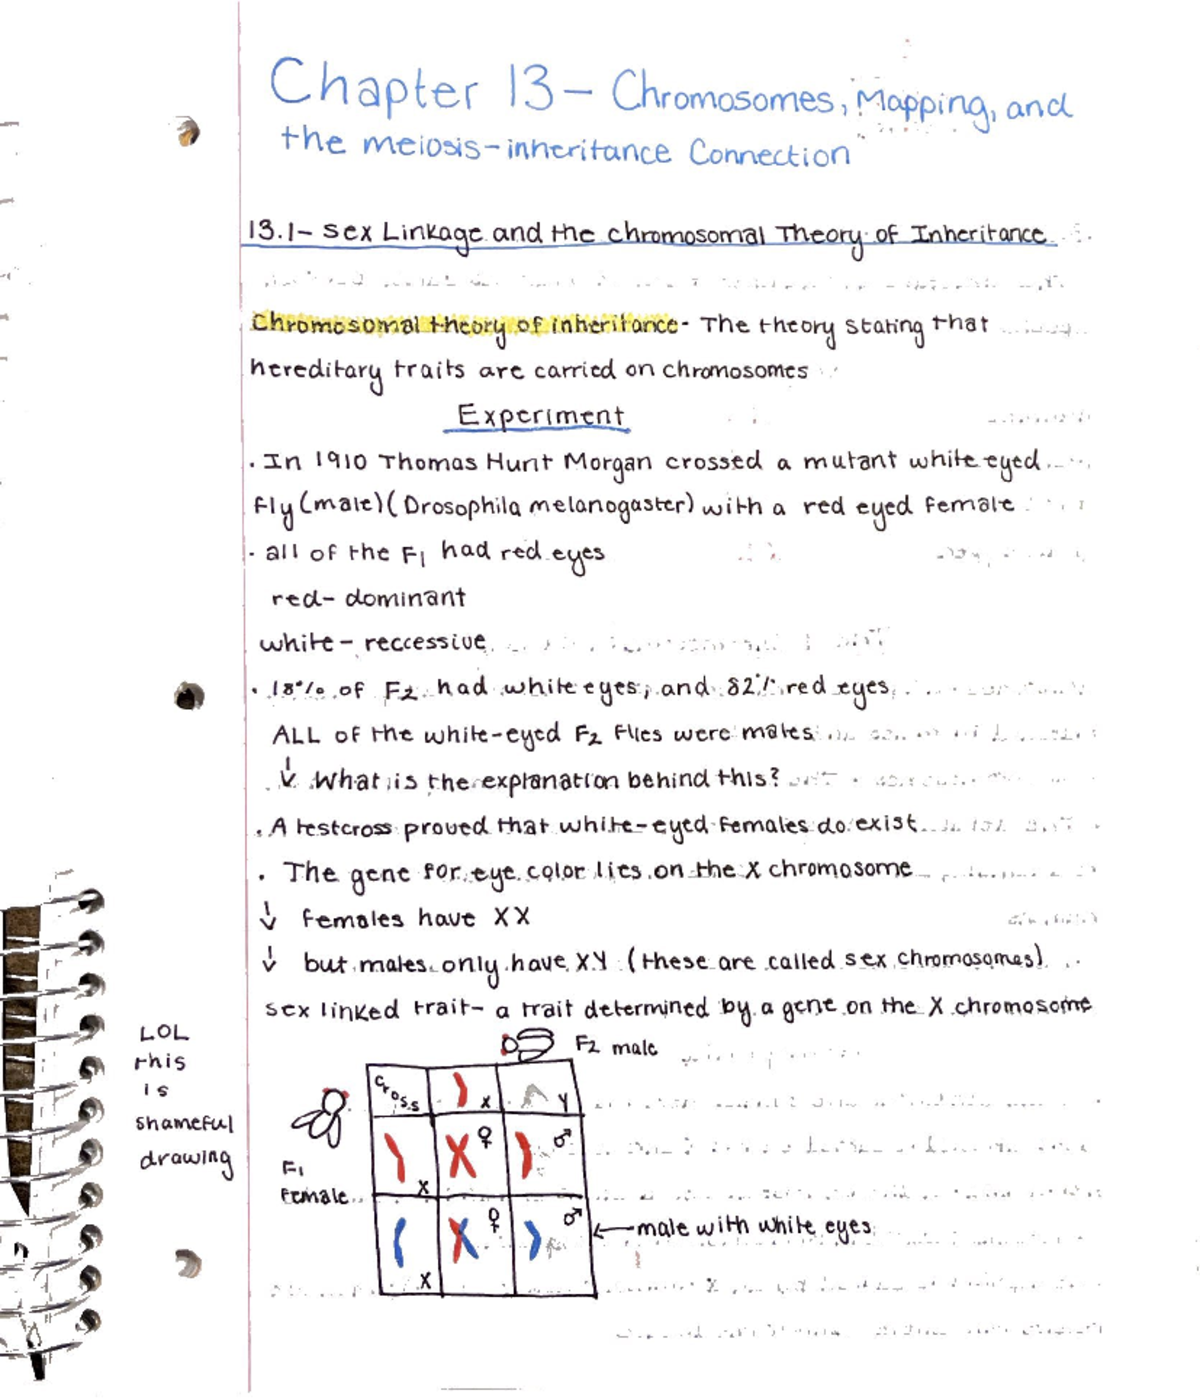 Chapter 13 - Chromosomes, Mapping, and
the meiosis-inheritance Connection
13.1- Sex Linkage and the chromosomal Theory of Inheritance
Chromosomal theory of inheritance- The theory stating that
hereditary traits are carried on chromosomes
Experiment
· In 1910 Thomas Hunt Morgan crossed a mutant white eyed
fly (male) (Drosophila melanogaster) with a red eyed female
· all of the F1 had red eyes
red- dominant
white- reccessive
· 18% of F2 had white eyes, and 82% red eyes
ALL of the white-eyed F2 flies were males
↓ What is the explanation behind this?
· A testcross proved that white-eyed females do exist
· The gene for eye color lies on the X chromosome
↓ females have XX
↓ but males only have XY (these are called sex chromosomes)
sex linked trait- a trait determined by a gene on the X chromosome
LOL
this
is
shameful
drawing
F2 male
Cross
X
Y
F1
female
X
♀
♂
X
♀
♂
←male with white eyes